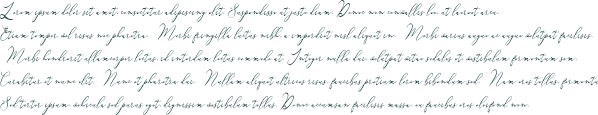 Lorem ipsum dolor sit amet, consectetur adipiscing elit. Suspendisse at justo diam. Donec non convallis leo, at laoreet arcu.
Etiam tempor vel risus nec pharetra. Morbi fringilla luctus nibh, a imperdiet nisl aliquet in. Morbi varius augue ac augue volutpat facilisis.
Morbi hendrerit ullamcorper lectus, id interdum lectus commodo at. Integer nulla dui, volutpat vitae sodales et, vestibulum fermentum sem.
Curabitur et nunc elit. Nunc et pharetra dui. Nullam aliquet ultrices risus, faucibus pretium lorem bibendum sed. Nam non tellus fermentum
Sed tortor ipsum, vehicula sed purus eget, dignissim vestibulum tellus. Donec accumsan facilisis massa, eu faucibus nisi eleifend non.